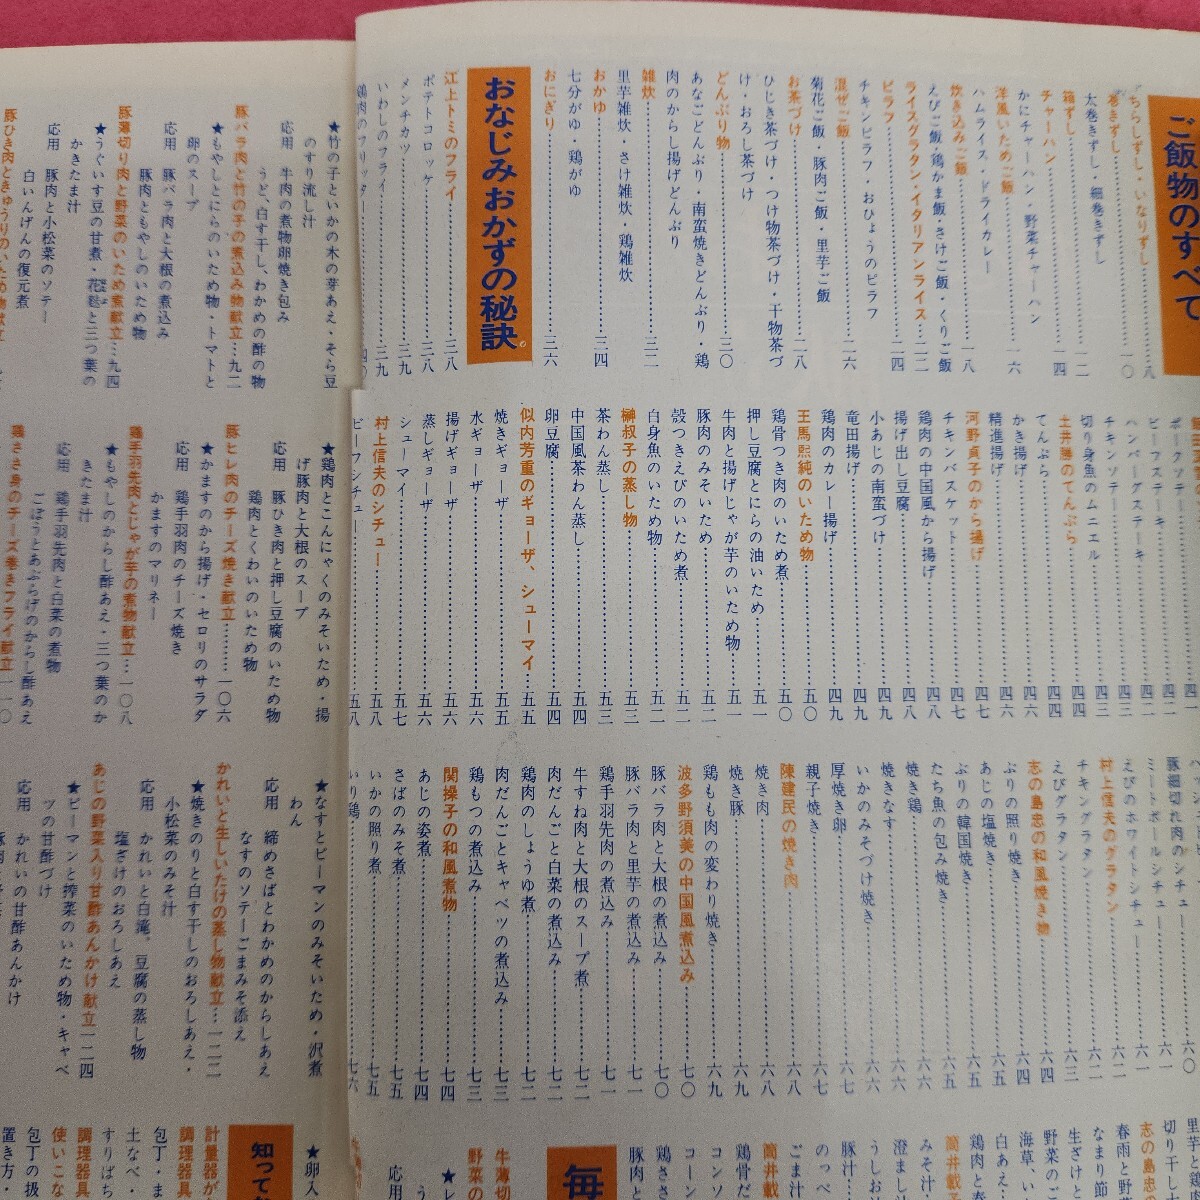 ご飯物のすべて
ちらしずし・いなりずし……八
巻きずし……一〇
太巻きずし・細巻きずし
箱ずし……一二
チャーハン……一四
かにチャーハン・野菜チャーハン
洋風いためご飯……一六
ハムライス・ドライカレー
炊き込みご飯……一八
えびご飯・鶏かま飯・さけご飯・くりご飯
ライスグラタン・イタリアンライス……二二
ピラフ……二四
チキンピラフ・おひょうのピラフ
混ぜご飯……二六
菊花ご飯・豚肉ご飯・里芋ご飯
お茶づけ……二八
ひじき茶づけ・つけ物茶づけ・干物茶づ
け・おろし茶づけ
どんぶり物……三〇
あなごどんぶり・南蛮焼きどんぶり・鶏
肉のからし揚げどんぶり
雑炊……三二
里芋雑炊・さけ雑炊・鶏雑炊
おかゆ……三四
七分がゆ・鶏がゆ
おにぎり……三六
おなじみおかずの秘訣
江上トミのフライ……三八
ポテトコロッケ……三八
メンチカツ……三九
いわしのフライ……三九
鶏肉のフリッター……四〇
ポークソテー……四一
ビーフステーキ……四二
ハンバーグステーキ……四二
チキンソテー……四三
切り身魚のムニエル……四三
土井勝のてんぷら……四四
てんぷら……四四
かき揚げ……四六
精進揚げ……四六
河野貞子のから揚げ……四七
チキンバスケット……四七
鶏肉の中国風から揚げ……四八
揚げ出し豆腐……四八
小あじの南蛮づけ……四九
竜田揚げ……四九
鶏肉のカレー揚げ……四九
王馬熙純のいため物……五〇
鶏骨つき肉のいため煮……五〇
押し豆腐とにらの油いため……五一
牛肉と揚げじゃが芋のいため物……五一
豚肉のみそいため……五二
殻つきえびのいため煮……五二
白身魚のいため物……五二
榊叔子の蒸し物……五三
茶わん蒸し……五三
中国風茶わん蒸し……五四
卵豆腐……五四
似内芳重のギョーザ、シューマイ……五五
焼きギョーザ……五五
水ギョーザ……五六
揚げギョーザ……五六
蒸しギョーザ……五六
シューマイ……五七
村上信夫のシチュー……五八
ビーフシチュー……五八
豚細切れ肉のシチュー……六〇
ミートボールシチュー……六一
えびのホワイトシチュー……六一
村上信夫のグラタン……六二
チキングラタン……六二
えびグラタン……六三
志の島忠の和風焼き物……六四
ぶりの照り焼き……六四
あじの塩焼き……六五
ぶりの韓国焼き……六五
たち魚の包み焼き……六五
焼き鶏……六六
焼きなす……六六
いかのみそづけ焼き……六六
厚焼き卵……六七
親子焼き……六七
陳建民の焼き肉……六八
焼き肉……六八
焼き豚……六九
鶏もも肉の変わり焼き……六九
波多野須美の中国風煮込み……七〇
豚バラ肉と大根の煮込み……七〇
豚バラ肉と里芋の煮込み……七一
鶏手羽先肉の煮込み……七一
牛すね肉と大根のスープ煮……七二
肉だんごと白菜の煮込み……七二
鶏肉のしょうゆ煮……七二
肉だんごとキャベツの煮込み……七三
鶏もつの煮込み……七三
関操子の和風煮物……七四
あじの姿煮……七四
さばのみそ煮……七五
いかの照り煮……七五
いり鶏……七六
毎
★竹の子といかの木の芽あえ・そら豆
のすり流し汁
応用　牛肉の煮物卵焼き包み
うど、白す干し、わかめの酢の物
豚バラ肉と竹の子の煮込み物献立…九二
★もやしとにらのいため物・トマトと
卵のスープ
応用　豚バラ肉と大根の煮込み
豚肉ともやしのいため物
豚薄切り肉と野菜のいため煮献立…九四
★うぐいす豆の甘煮・花麩と三つ葉の
かきたま汁
応用　豚肉と小松菜のソテー
白いんげんの復元煮
★鶏肉とこんにゃくのみそいため・揚
げ豚肉と大根のスープ
応用　豚ひき肉と押し豆腐のいため物
鶏肉とくわいのいため物
豚ヒレ肉のチーズ焼き献立……一〇六
★かますのから揚げ・セロリのサラダ
応用　鶏手羽肉のチーズ焼き
かますのマリネー
鶏手羽先肉とじゃが芋の煮物献立…一〇八
★もやしのからし酢あえ・三つ葉のか
きたま汁
応用　鶏手羽先肉と白菜の煮物
ごぼうとあぶらげのからし酢あえ
鶏ささ身のチーズ巻きフライ献立一一〇
★なすとピーマンのみそいため・沢煮
わん
応用　締めさばとわかめのからしあえ
なすのソテーごまみそ添え
かれいと生しいたけの蒸し物献立…一二二
★焼きのりと白す干しのおろしあえ・
小松菜のみそ汁
応用　かれいと白滝、豆腐の蒸し物
塩ざけのおろしあえ
あじの野菜入り甘酢あんかけ献立一二四
★ピーマンと搾菜のいため物・キャベ
ツの甘酢づけ
応用　かれいの甘酢あんかけ